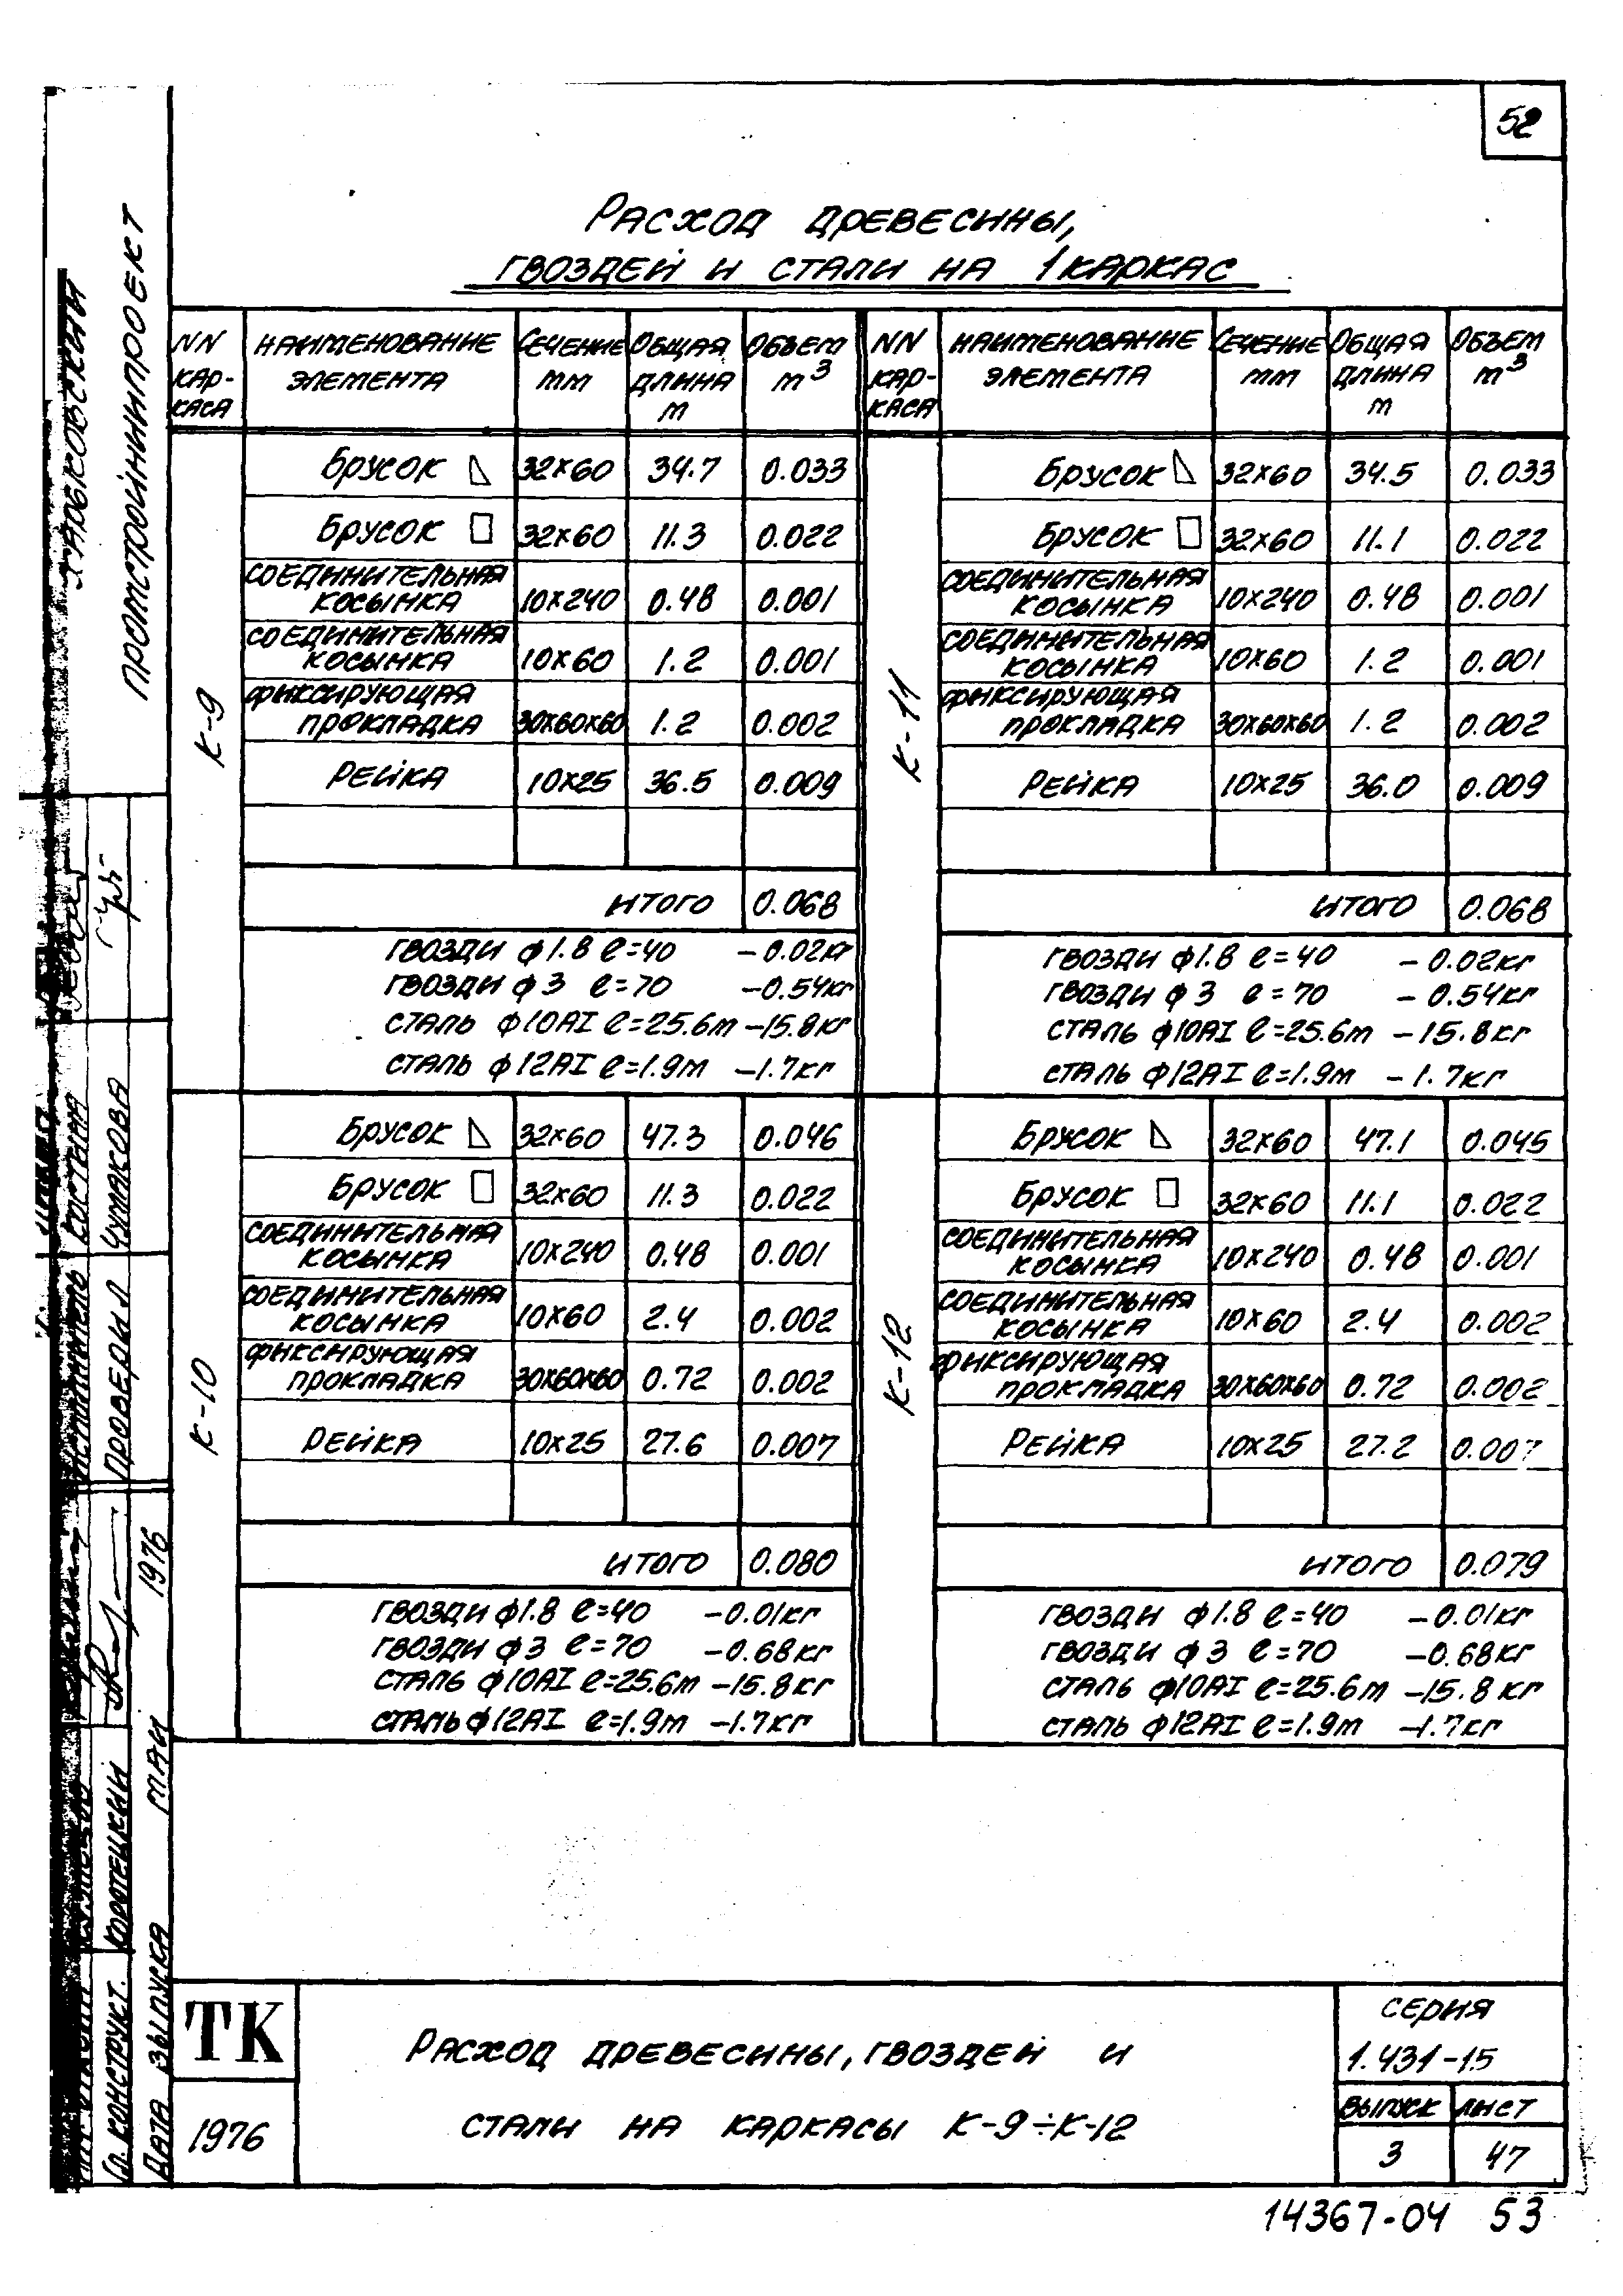 52
Расход древесины,
гвоздей и стали на 1 каркас
NN каркаса | Наименование элемента | Сечение mm | Общая длина m | Объем m³
К-9
Брусок | 32×60 | 34.7 | 0.033
Брусок | 32×60 | 11.3 | 0.022
Соединительная косынка | 10×240 | 0.48 | 0.001
Соединительная косынка | 10×60 | 1.2 | 0.001
Фиксирующая прокладка | 30×60×60 | 1.2 | 0.002
Рейка | 10×25 | 36.5 | 0.009
Итого | 0.068
Гвозди ф1.8 ℓ=40 -0.02кг
Гвозди ф3 ℓ=70 -0.54кг
Сталь ф10АI ℓ=25.6m -15.8кг
Сталь ф12АI ℓ=1.9m -1.7кг
К-10
Брусок | 32×60 | 47.3 | 0.046
Брусок | 32×60 | 11.3 | 0.022
Соединительная косынка | 10×240 | 0.48 | 0.001
Соединительная косынка | 10×60 | 2.4 | 0.002
Фиксирующая прокладка | 30×60×60 | 0.72 | 0.002
Рейка | 10×25 | 27.6 | 0.007
Итого | 0.080
Гвозди ф1.8 ℓ=40 -0.01кг
Гвозди ф3 ℓ=70 -0.68кг
Сталь ф10АI ℓ=25.6m -15.8кг
Сталь ф12АI ℓ=1.9m -1.7кг
NN каркаса | Наименование элемента | Сечение mm | Общая длина m | Объем m³
К-11
Брусок | 32×60 | 34.5 | 0.033
Брусок | 32×60 | 11.1 | 0.022
Соединительная косынка | 10×240 | 0.48 | 0.001
Соединительная косынка | 10×60 | 1.2 | 0.001
Фиксирующая прокладка | 30×60×60 | 1.2 | 0.002
Рейка | 10×25 | 36.0 | 0.009
Итого | 0.068
Гвозди ф1.8 ℓ=40 -0.02кг
Гвозди ф3 ℓ=70 -0.54кг
Сталь ф10АI ℓ=25.6m -15.8кг
Сталь ф12АI ℓ=1.9m -1.7кг
К-12
Брусок | 32×60 | 47.1 | 0.045
Брусок | 32×60 | 11.1 | 0.022
Соединительная косынка | 10×240 | 0.48 | 0.001
Соединительная косынка | 10×60 | 2.4 | 0.002
Фиксирующая прокладка | 30×60×60 | 0.72 | 0.002
Рейка | 10×25 | 27.2 | 0.007
Итого | 0.079
Гвозди ф1.8 ℓ=40 -0.01кг
Гвозди ф3 ℓ=70 -0.68кг
Сталь ф10АI ℓ=25.6m -15.8кг
Сталь ф12АI ℓ=1.9m -1.7кг
Харьковский
Промстройниипроект
Исполнитель Костана
Проверил Чумакова
Гл. конструкт. Коротецкий
Дата выпуска май 1976
ТК
1976
Расход древесины, гвоздей и
стали на каркасы К-9÷К-12
Серия
1.431-15
Выпуск Лист
3 47
14367-04 53